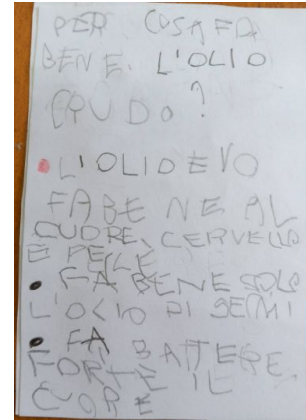 PER COSA FA
BENE L'OLIO
CRUDO?
• L'OLIO EVO
FA BENE AL
CUORE, CERVELLO
E PELLE
• FA BENE SOLO
L'OLIO DI SEMI
• FA BATTERE
FORTE IL
CUORE